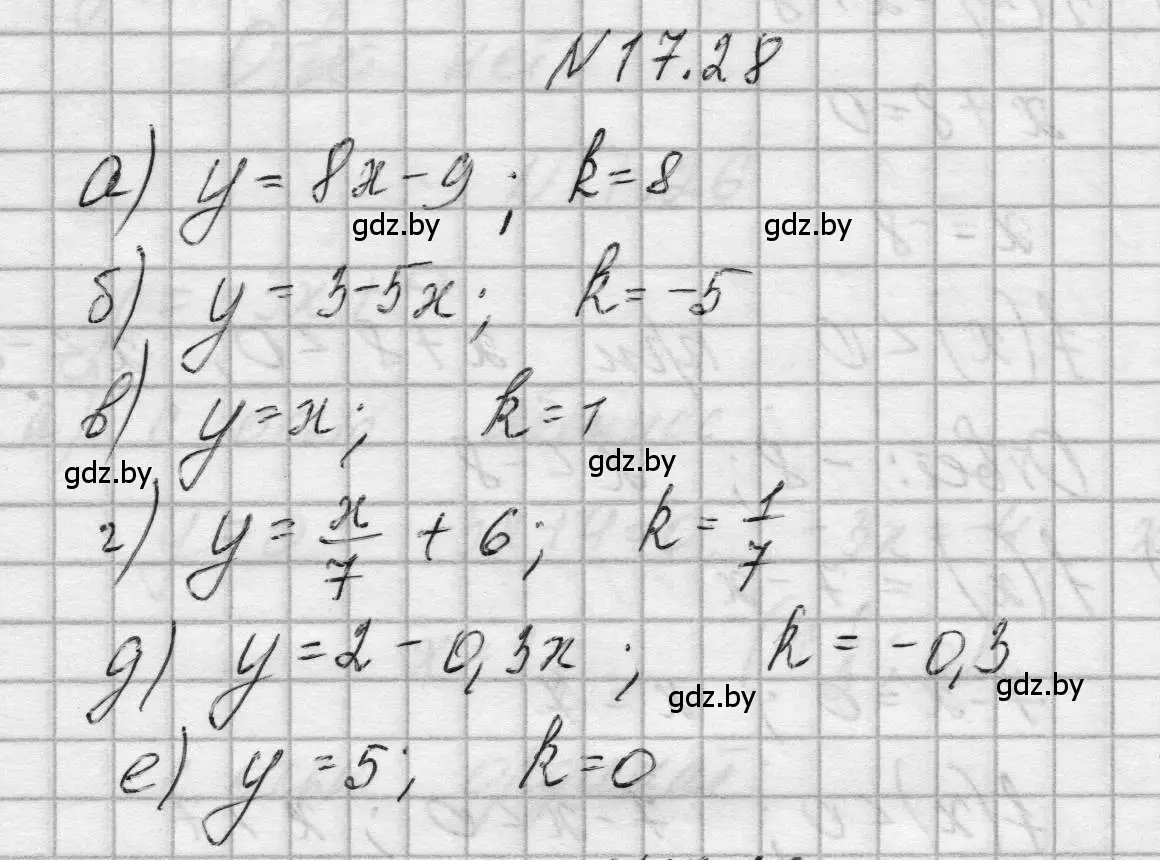 N 17.28
а) y = 8x - 9 ; k = 8
gdz.by gdz.by
б) y = 3 - 5x ; k = -5
в) y = x ; k = 1
gdz.by gdz.by
г) y = x/7 + 6 ; k = 1/7
д) y = 2 - 0,3x ; k = -0,3
gdz.by gdz.by
е) y = 5 ; k = 0